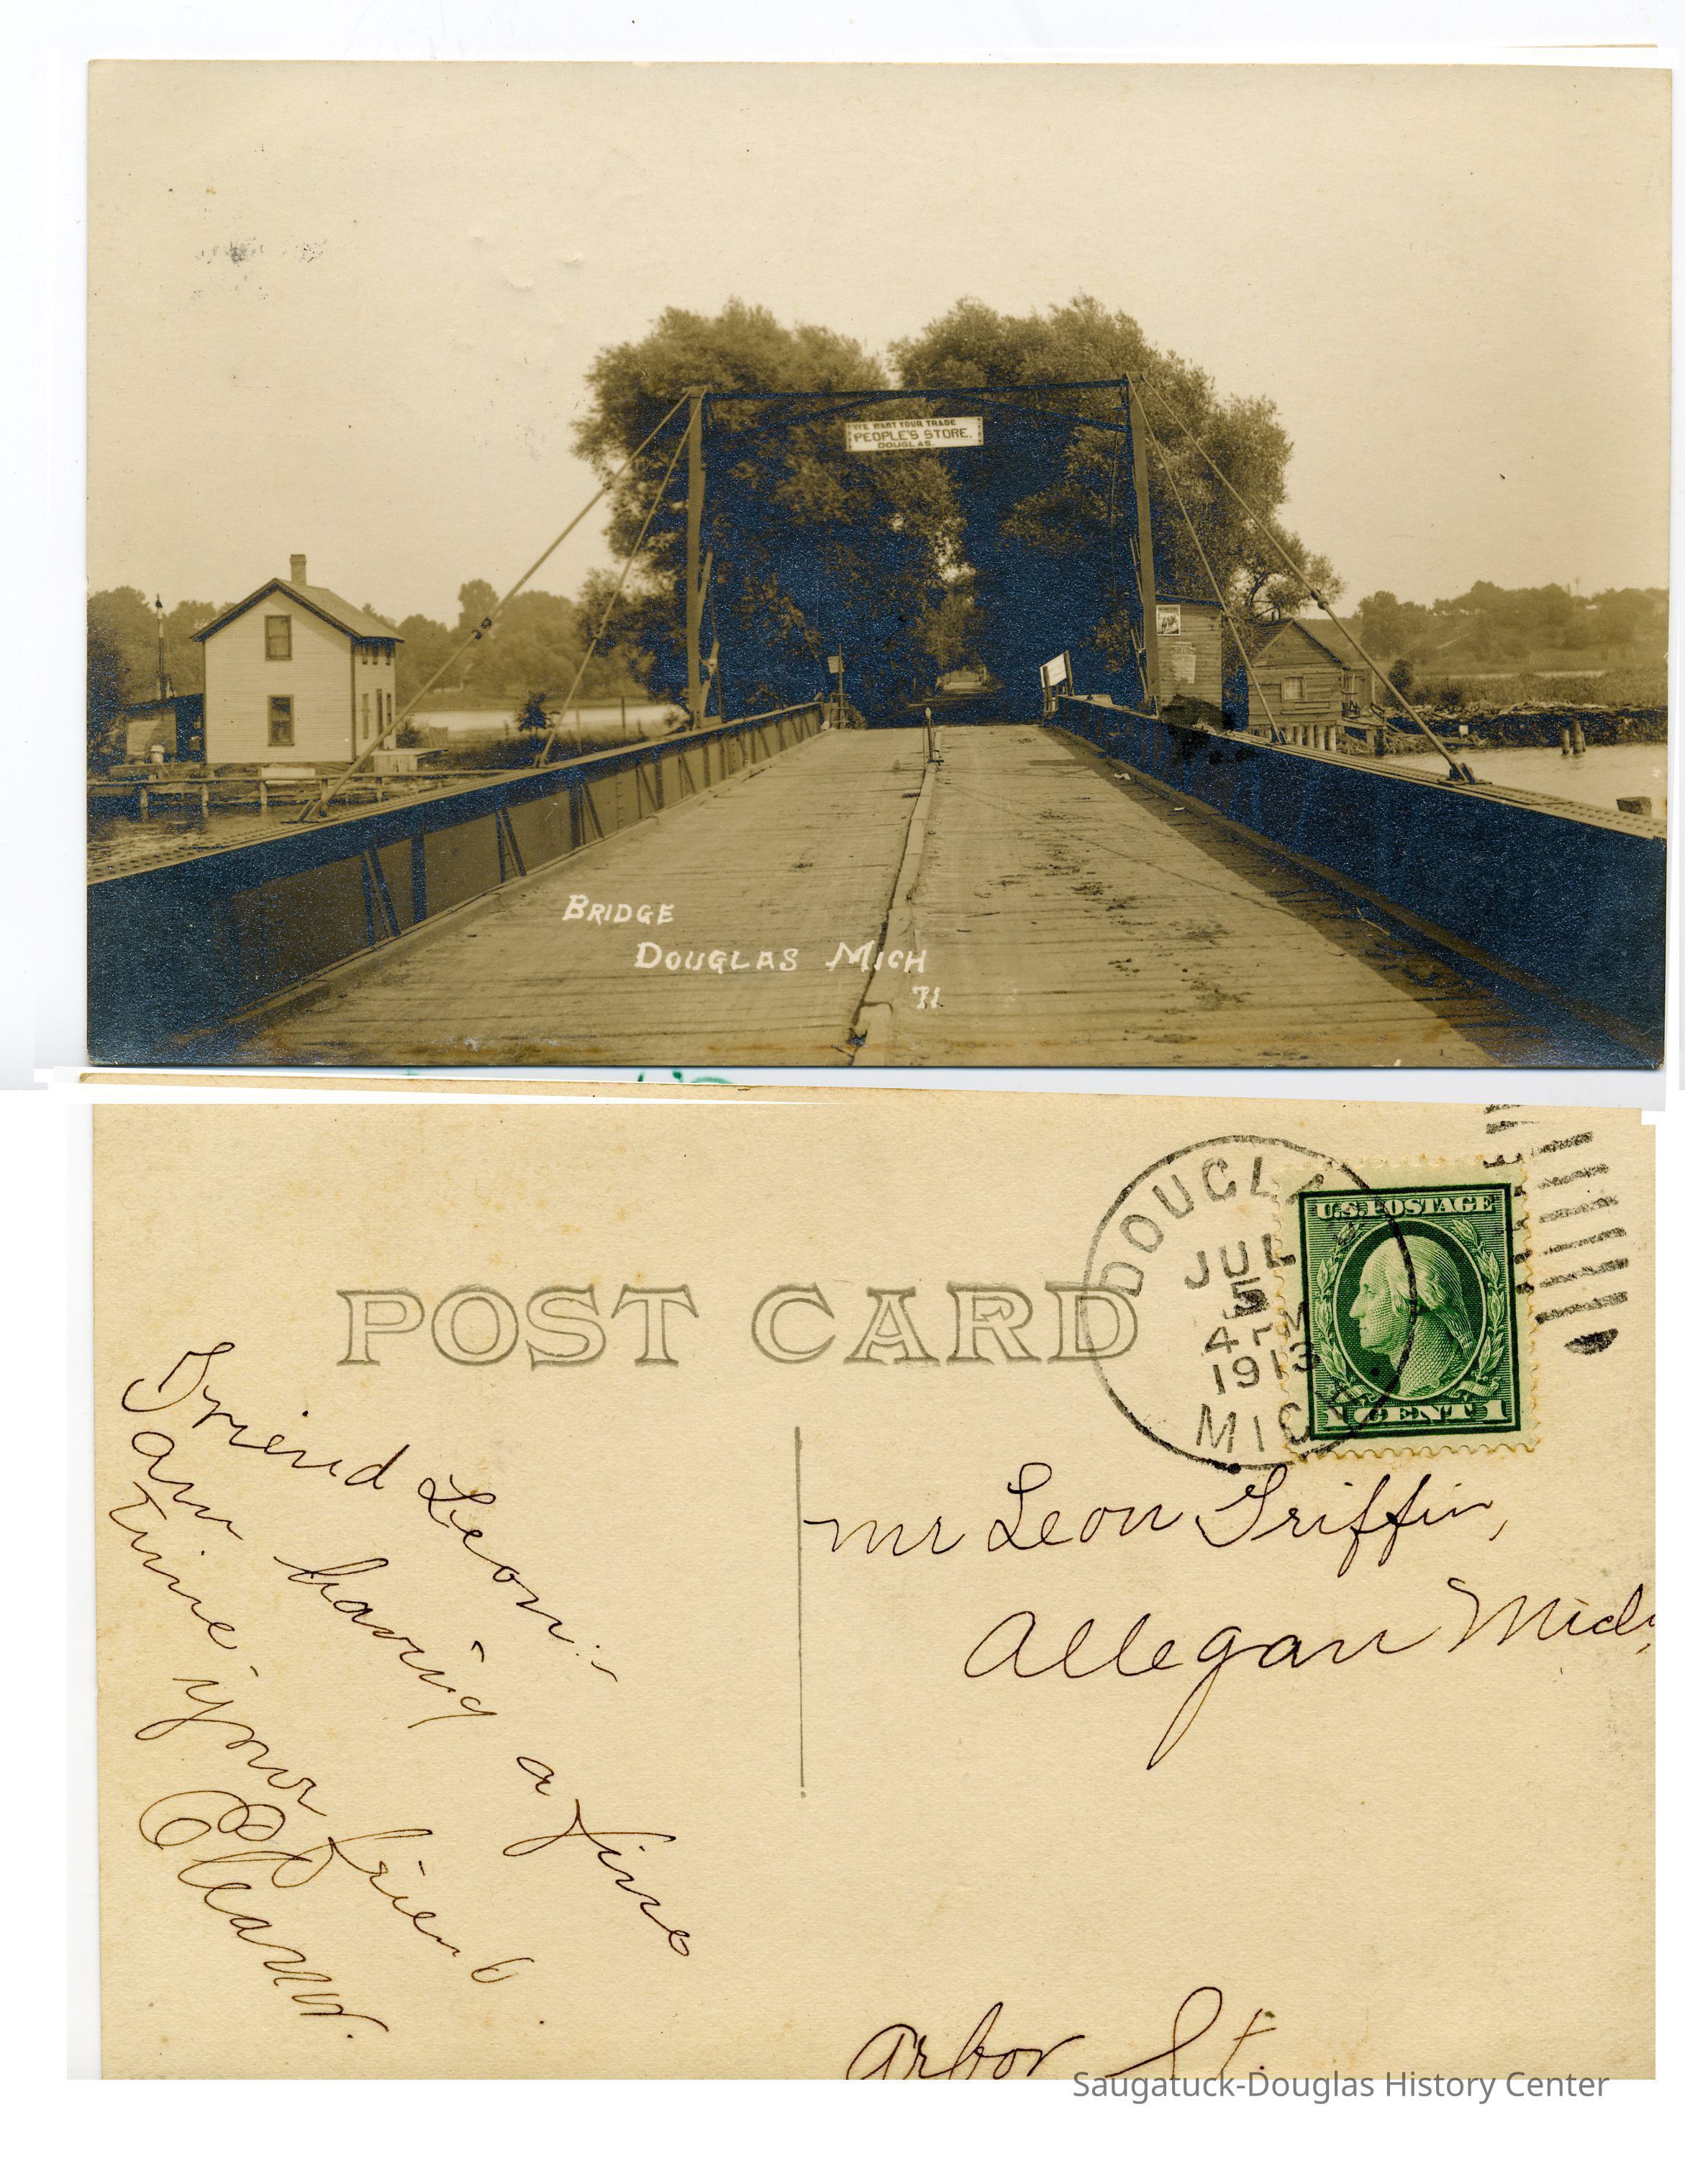 WE WANT YOUR TRADE
PEOPLE'S STORE.
DOUGLAS.
BRIDGE
DOUGLAS MICH
71
POST CARD
DOUGLAS
JUL
5
4 PM
1913
MICH
U.S. POSTAGE
1 CENT 1
Friend Leon:-
Am having a fine
time.
your friend.
mr Leon Griffin,
Allegan Mich,
Arbor St.
Saugatuck-Douglas History Center